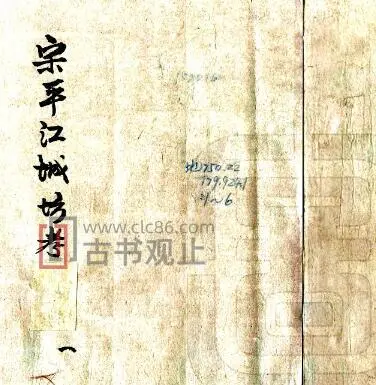 宋平江城坊考
一
地750.22
179.92
21~6
www.clc86.com
古书观止